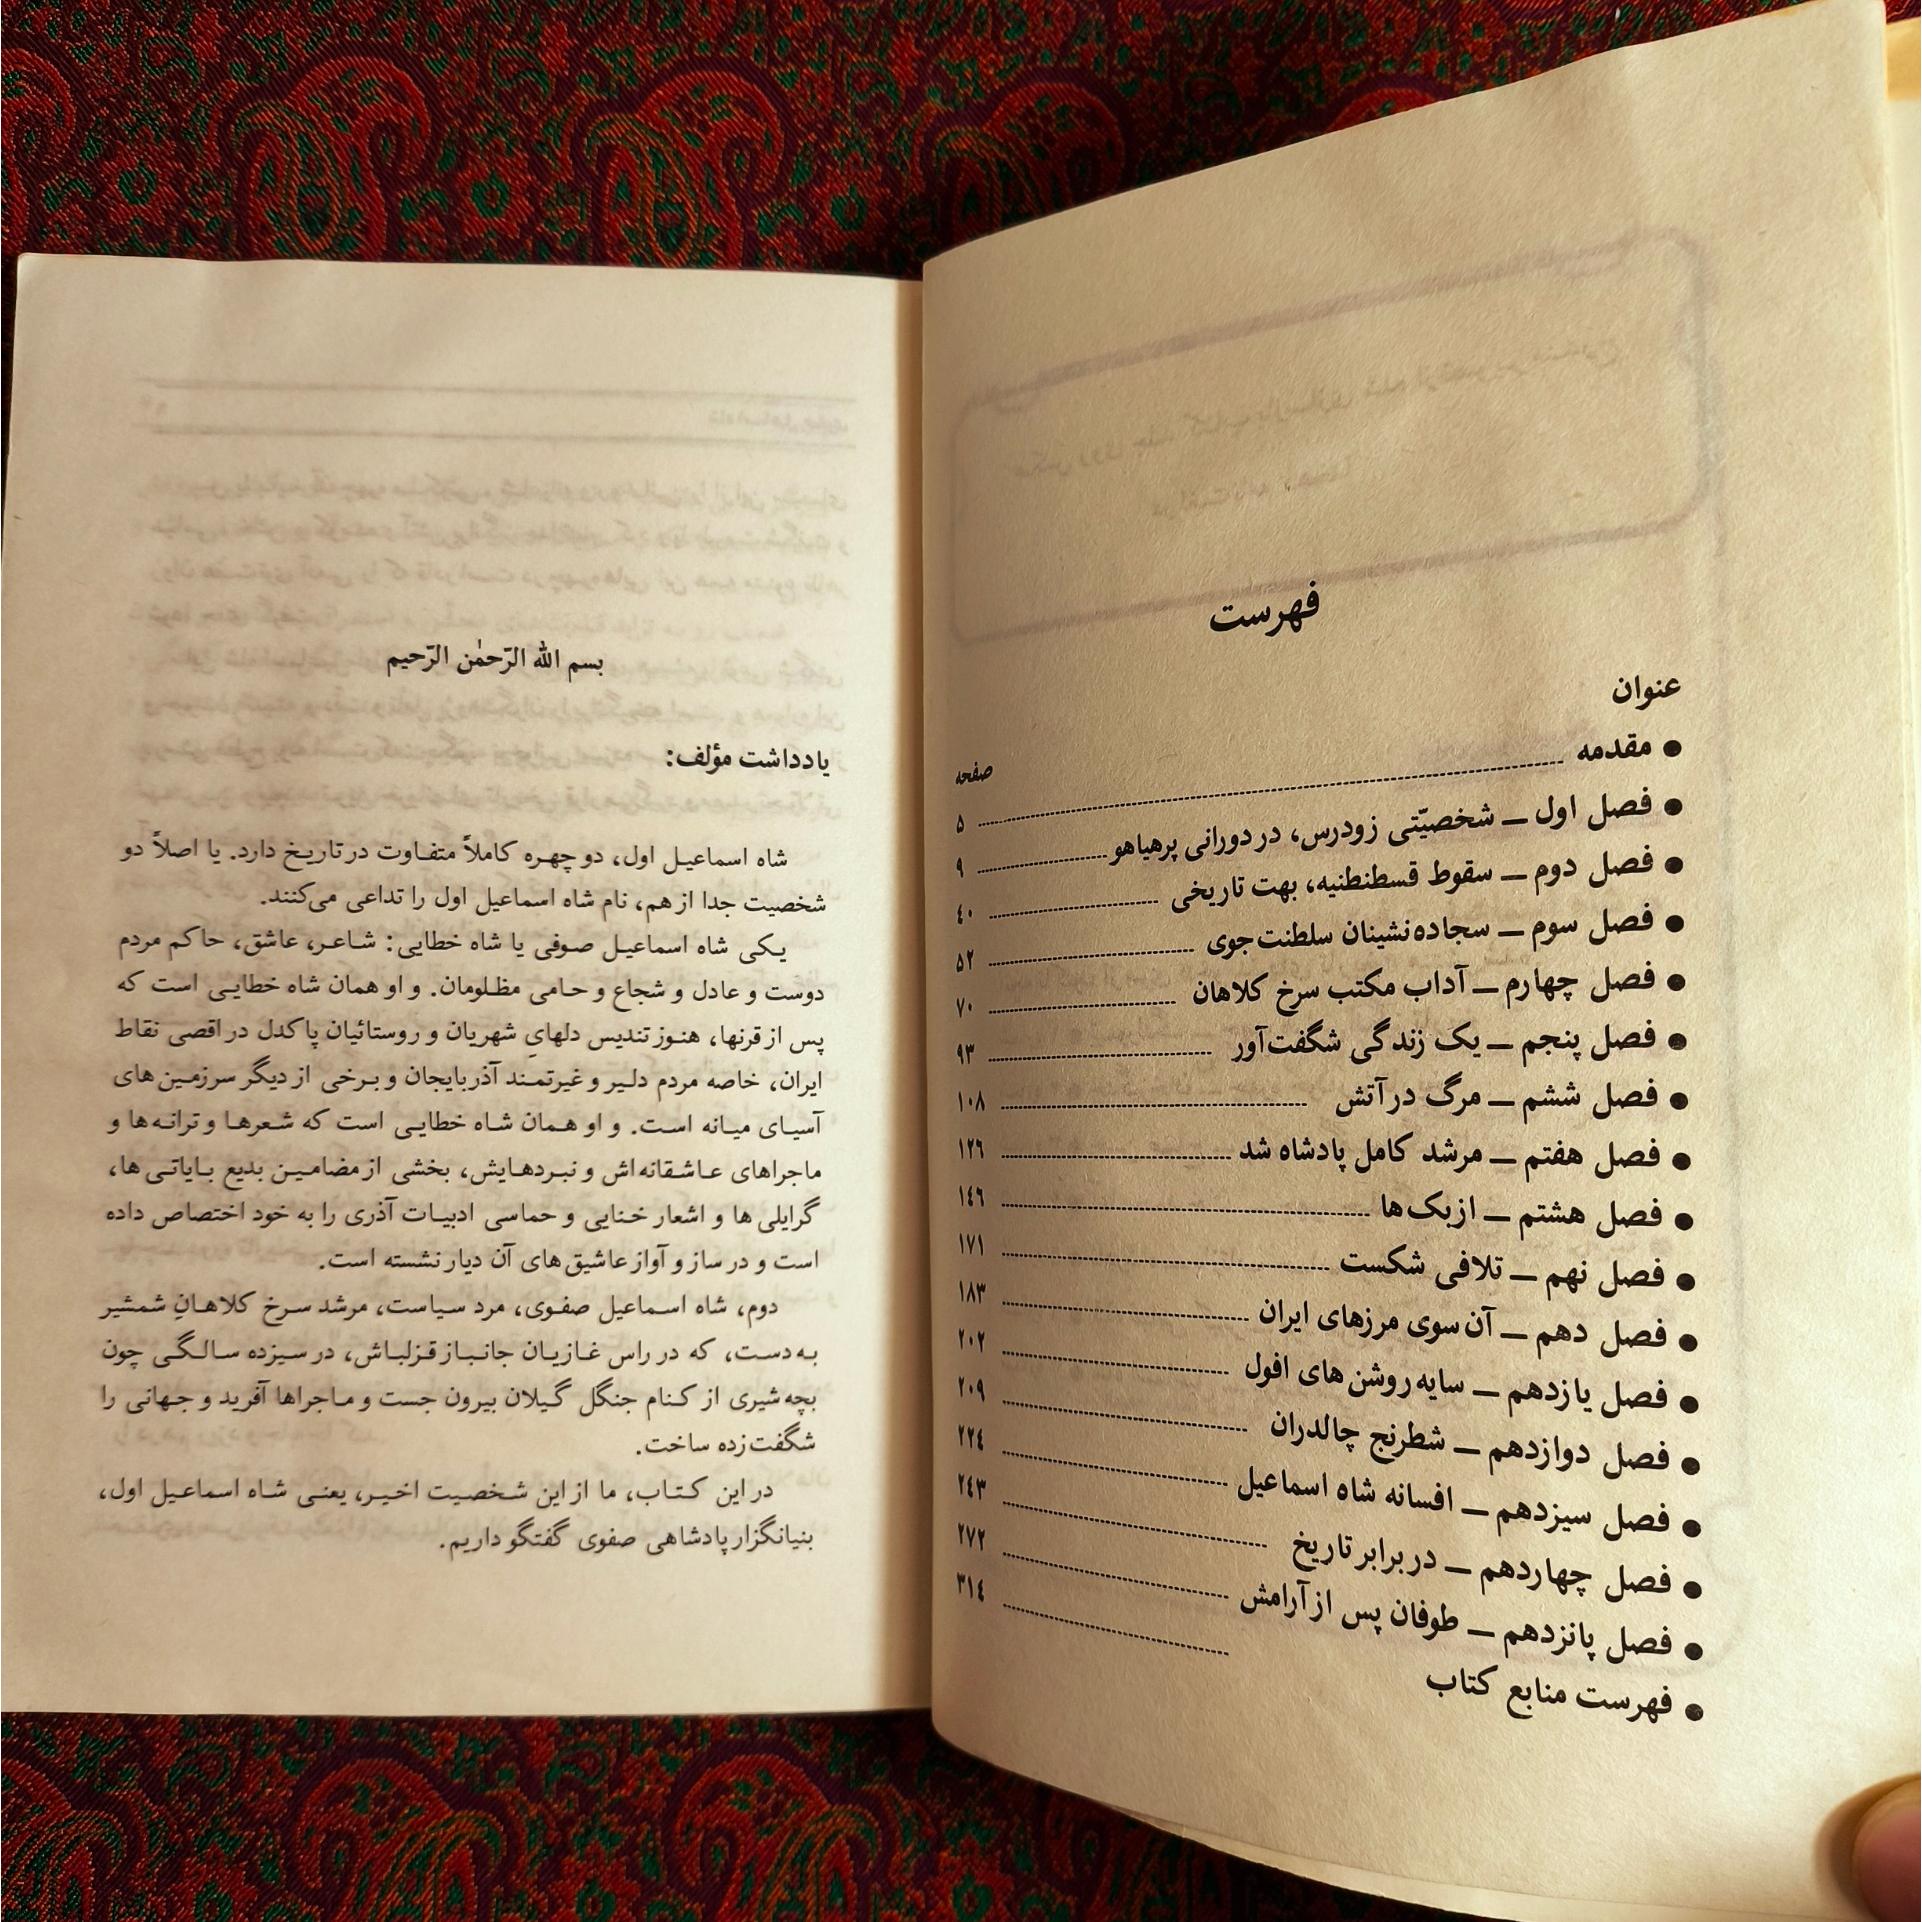 فهرست
عنوان
صفحه
● مقدمه ........ ۵
● فصل اول ـ شخصیّتی زودرس، در دورانی پرهیاهو ........ ۹
● فصل دوم ـ سقوط قسطنطنیه، بهت تاریخی ........ ٤۰
● فصل سوم ـ سجاده‌نشینان سلطنت‌جوی ........ ۵۲
● فصل چهارم ـ آداب مکتب سرخ کلاهان ........ ۷۰
● فصل پنجم ـ یک زندگی شگفت‌آور ........ ۹۳
● فصل ششم ـ مرگ در آتش ........ ۱۰۸
● فصل هفتم ـ مرشد کامل پادشاه شد ........ ۱۲٦
● فصل هشتم ـ ازبک‌ها ........ ۱٤٦
● فصل نهم ـ تلافی شکست ........ ۱۷۱
● فصل دهم ـ آن سوی مرزهای ایران ........ ۱۸۳
● فصل یازدهم ـ سایه روشن های افول ........ ۲۰۲
● فصل دوازدهم ـ شطرنج چالدران ........ ۲۰۹
● فصل سیزدهم ـ افسانه شاه اسماعیل ........ ۲۲٤
● فصل چهاردهم ـ در برابر تاریخ ........ ۲٤۳
● فصل پانزدهم ـ طوفان پس از آرامش ........ ۲۷۲
● فهرست منابع کتاب ........ ۳۱٤
بسم الله الرّحمٰن الرّحیم
یادداشت مؤلف:
شاه اسماعیل اول، دو چهره کاملاً متفاوت در تاریخ دارد. یا اصلاً دو
شخصیت جدا از هم، نام شاه اسماعیل اول را تداعی می‌کنند.
یکی شاه اسماعیل صوفی یا شاه خطایی: شاعر، عاشق، حاکم مردم
دوست و عادل و شجاع و حامی مظلومان. و او همان شاه خطایی است که
پس از قرنها، هنوز تندیس دلهایِ شهریان و روستائیان پاکدل در اقصی نقاط
ایران، خاصه مردم دلیر و غیرتمند آذربایجان و برخی از دیگر سرزمین های
آسیای میانه است. و او همان شاه خطایی است که شعرها و ترانه ها و
ماجراهای عاشقانه‌اش و نبردهایش، بخشی از مضامین بدیع بایاتی ها،
گرایلی ها و اشعار خنایی و حماسی ادبیات آذری را به خود اختصاص داده
است و در ساز و آواز عاشیق های آن دیار نشسته است.
دوم، شاه اسماعیل صفوی، مرد سیاست، مرشد سرخ کلاهانِ شمشیر
به دست، که در راس غازیان جانباز قزلباش، در سیزده سالگی چون
بچه شیری از کنام جنگل گیلان بیرون جست و ماجراها آفرید و جهانی را
شگفت زده ساخت.
در این کتاب، ما از این شخصیت اخیر، یعنی شاه اسماعیل اول،
بنیانگزار پادشاهی صفوی گفتگو داریم.